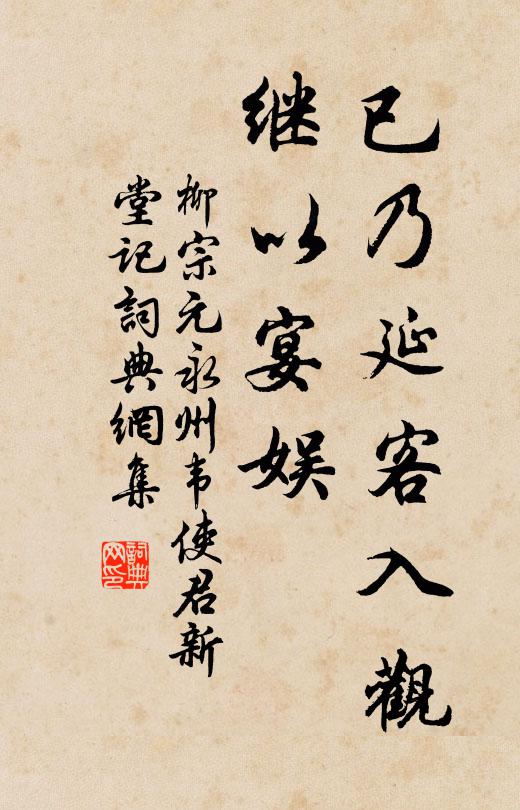 已乃延客入觀
继以宴娱
柳宗元永州韦使君新
堂记詞典網集
詞典
网印